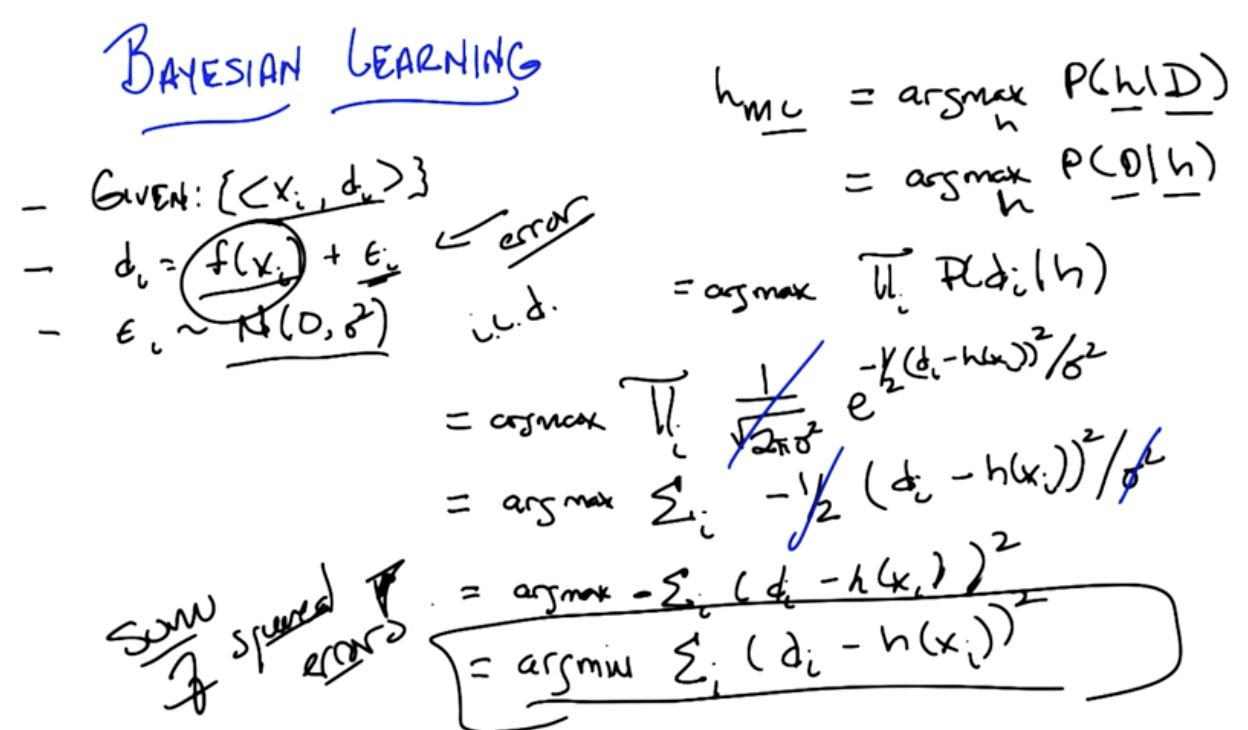 BAYESIAN LEARNING
- GIVEN: {<xᵢ, dᵢ>}
- dᵢ = f(xᵢ) + εᵢ ← error
- εᵢ ~ N(0, σ²) i.i.d.
h_ML = argmax_h P(h|D)
= argmax_h P(D|h)
= argmax ∏ᵢ P(dᵢ|h)
= argmax ∏ᵢ 1/√(2πσ²) e^(-½(dᵢ-h(xᵢ))²/σ²)
= argmax Σᵢ -1/2 (dᵢ - h(xᵢ))²/σ²
= argmax -Σᵢ (dᵢ - h(xᵢ))²
= argmin Σᵢ (dᵢ - h(xᵢ))²
sum
of squared
error